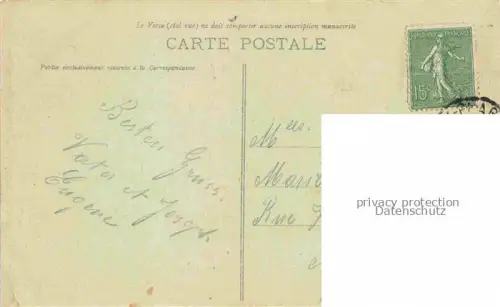 Le Verso (côté vue) ne doit comporter aucune inscription manuscrite
CARTE POSTALE
Partie exclusivement réservée à la Correspondance
RÉPUBLIQUE FRANÇAISE
15
Besten Gruss.
Vater et Joseph
Eugene
Mlles
Rue
privacy protection
Datenschutz